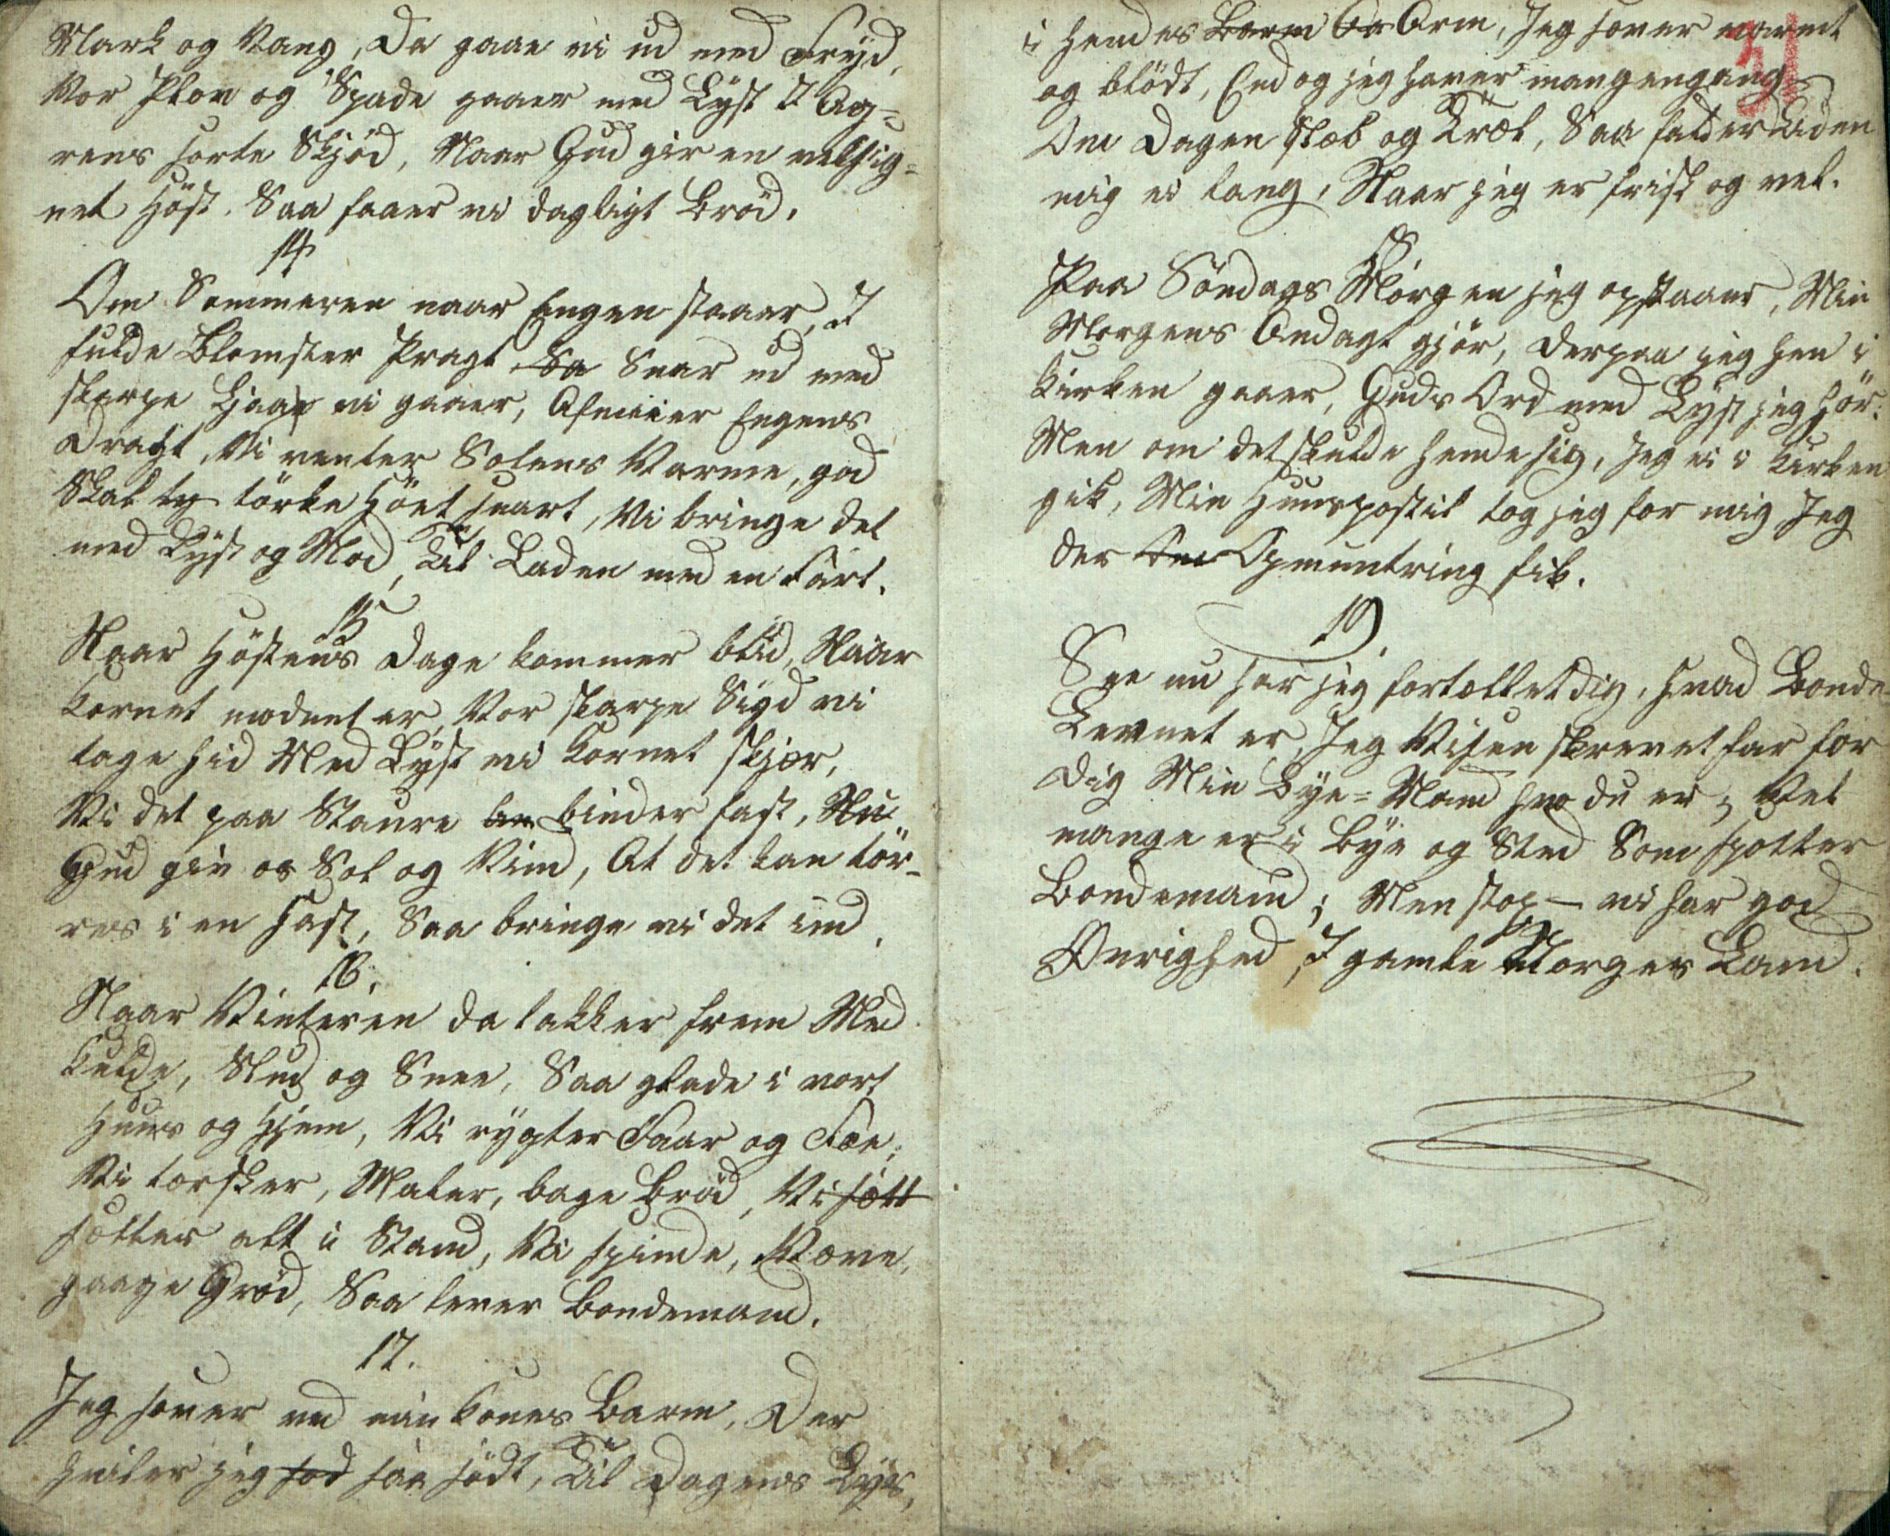 Mark og Vang, Da gaae vi ud med Fryd,
Vor Plov og Spade gaaer med Lyst I Ag-
rens sorte Skjöd, Naar Gud gir en velsig-
net Höst. Saa faaer vi dagligt Bröd.
14
Om Sommeren naar Engen staaer, I
fulde Blomster Pragt, Sa Snar ud med
skarpe Ljaae vi gaaer, Afmeier Engens
Dragt, Vi venter Solens Varme, god
Skal ty törke Höet snart, Vi bringe det
med Lyst og Mod, Til Laden med en Fart.
15
Naar Höstens Dage kommer blid, Naar
Kornet modent er, Vor skarpe Sigd vi
tage hid Med Lyst vi Kornet skjær,
Vi det paa Staure be binder fast, Nu
Gud giv os Sol og Vind, At det kan tör-
res i en Hast, Saa bringe vi det ind.
16.
Naar Vinteren da lakker frem Med
Kulde, Slud og Snee, Saa glade i vort
Huus og Hjem, Vi rygter Faar og Fæe,
Vi torsker, Maler, bage Bröd, Vi sætt
sætter alt i Stand, Vi spinde, Væve,
gaape Gröd, Saa lever Bondemand.
17.
Jeg sover ved min Kones Barm, Der
hviler jeg sød saa södt, Til Dagens Lys,
i hendes Barm Ar Arm, Jeg sover varmt
og blödt, End og jeg haver mangengang
Om Dagen Slæb og Træl, Saa falder Tiden
mig ei lang, Naar jeg er frisk og vel.
18
Paa Söndags Morgen jeg opstaaer, Min
Morgens Andagt gjör, derpaa jeg hen i
Kirken gaaer, Guds Ord med Lyst jeg hör.
Men om det skulde hende sig, Jeg ei i Kirken
gik, Min Huuspostil tog jeg for mig Jeg
der Om Opmuntring fik.
19
See nu har jeg fortællet dig, hvad Bonde
Levnet er, Jeg Visen skrevet har for
dig Min Bye-Mand hvo du er; Vel
mange er i Bye og Sted Som spotter
Bondemand; Men stop - vi har god
Øvrighed, I gamle Norges Land.